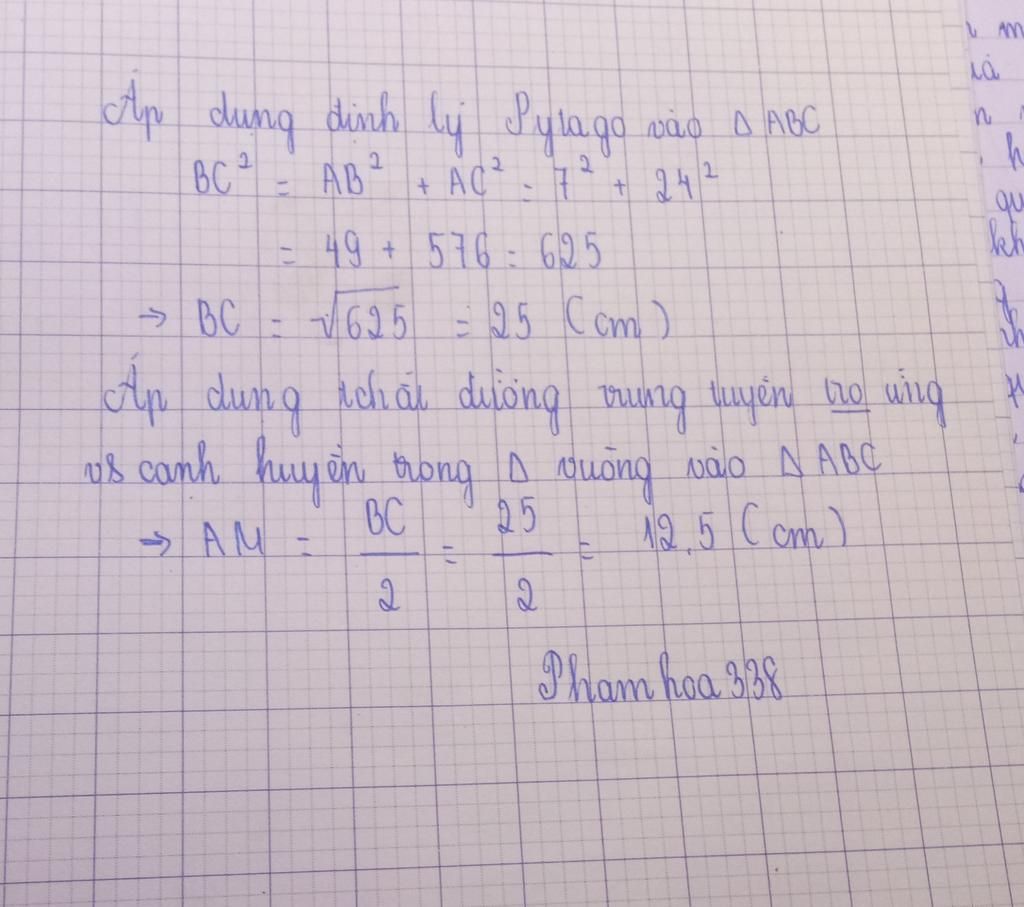 Áp dụng định lý Pytago vào Δ ABC
BC² = AB² + AC² = 7² + 24²
= 49 + 576 = 625
→ BC = √625 = 25 (cm)
Áp dụng t/chất đường trung tuyến ứng
vs cạnh huyền trong Δ vuông vào Δ ABC
→ AM = BC/2 = 25/2 = 12,5 (cm)
Phamhoa338